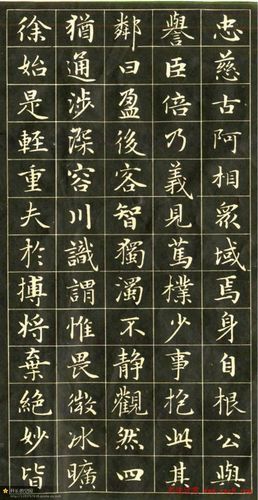 忠慈古阿相眾域焉身自根公與
譽臣倍乃義見篤樸少事抱此其
鄰曰盈後客智獨濁不静觀然四
猶通涉深容川識謂惟畏微冰曠
徐始是輕重夫於搏將棄絕妙皆